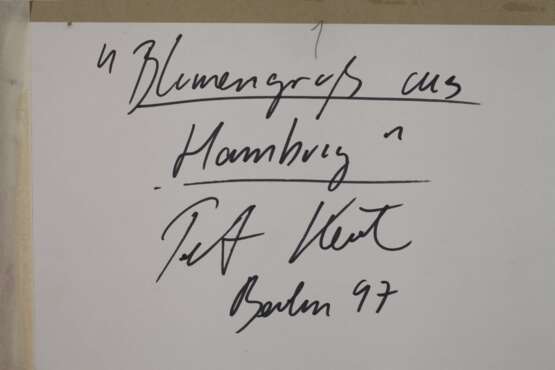 "Blumengruß aus
Hamburg"
Kent
Berlin 97